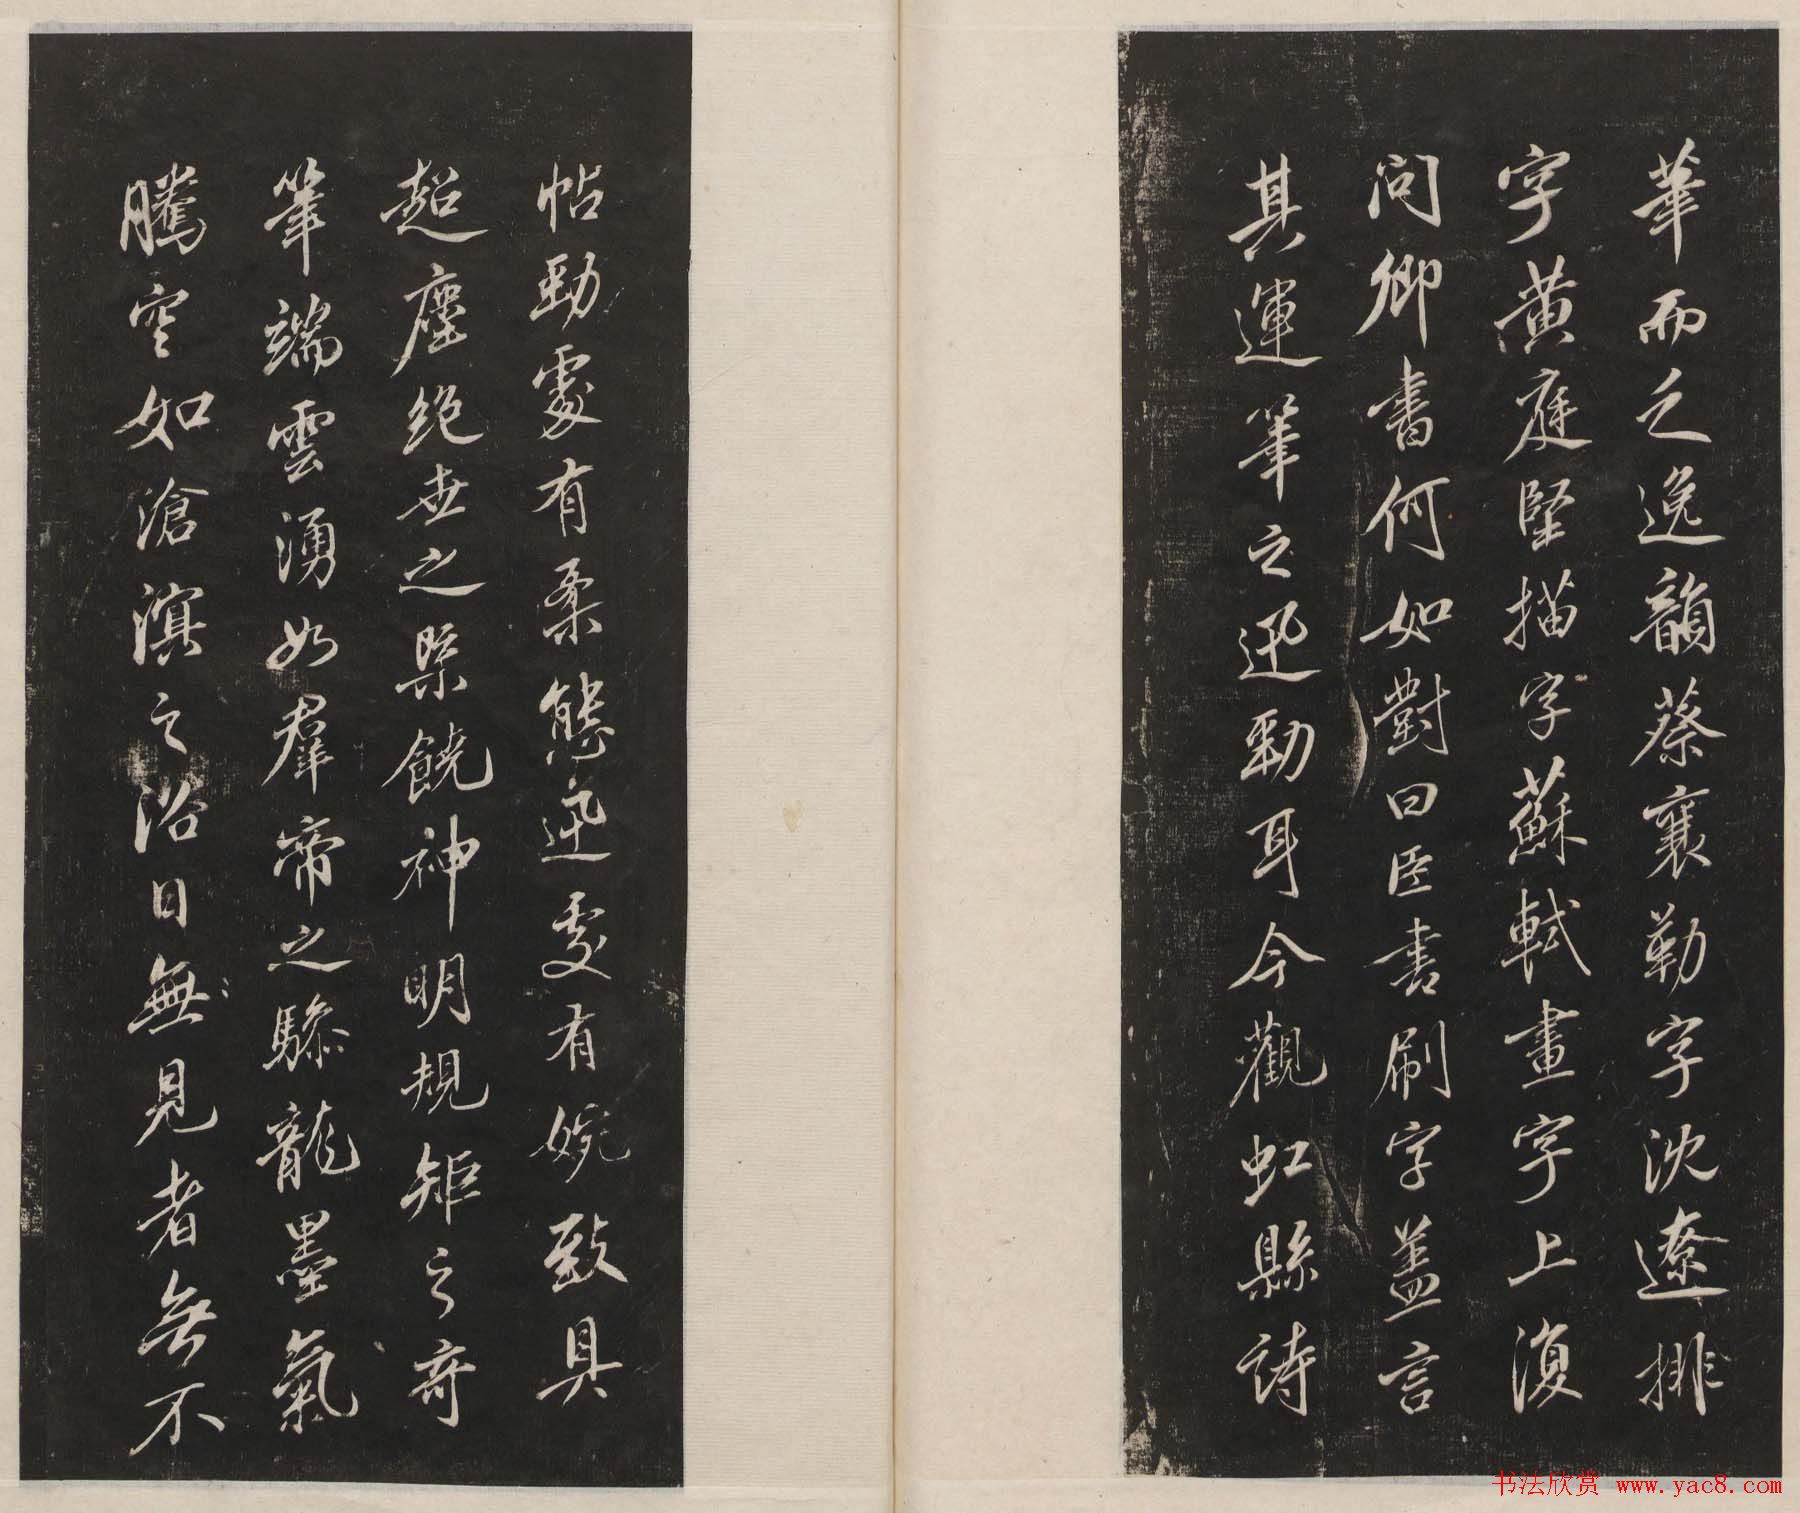 華而之逸韻蔡襄勒字沈遼排
字黃庭堅描字蘇軾畫字上復
問卿書何如對曰臣書刷字蓋言
其運筆之迅勁耳今觀虹縣詩
帖勁處有柔態迅處有婉致具
超塵絕世之槩饒神明規矩之奇
筆端雲湧如群帝之驂龍墨氣
騰空如滄溟之浴日無見者無不
书法欣赏 www.yac8.com